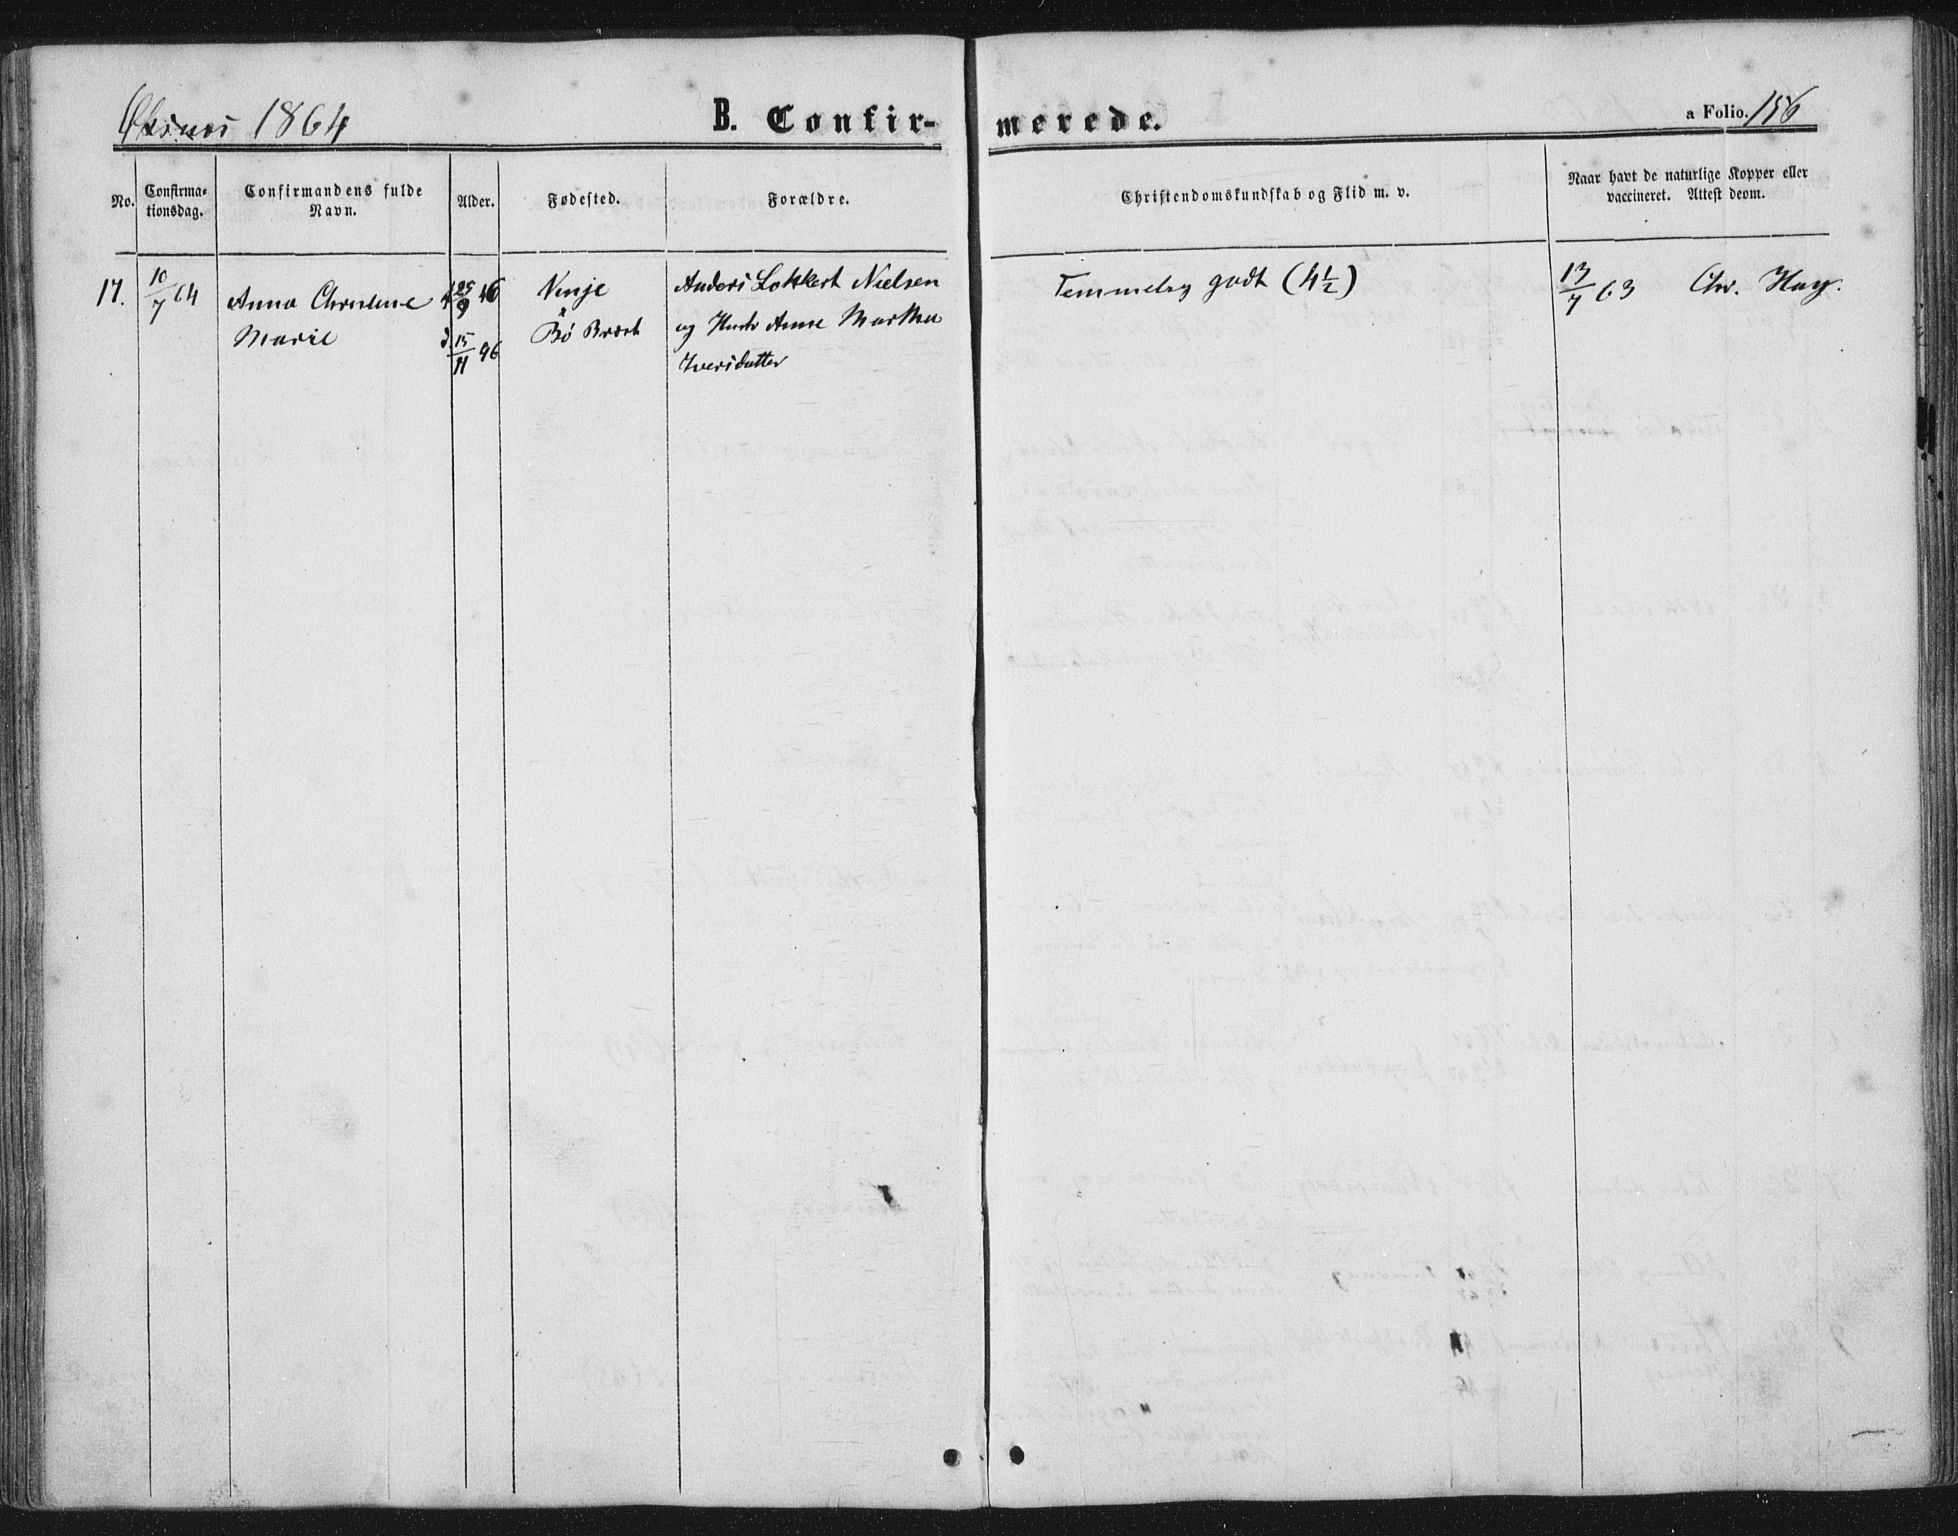 Øksnes 1864
B. Confir-
merede.
a Folio. 156
No.
Confirma-
tionsdag.
Confirmandens fulde
Navn.
Alder.
Fødested.
Forældre.
Christendomskundskab og Flid m. v.
Naar havt de naturlige Kopper eller
vaccineret. Attest deom.
17.
10/7 64
Anna Christine
Marie
f 25/9 46
d 15/11 46
Ninje
Bø
Anders Lokkert Nielsen
og Hustr Anne Martha
Iversdatter
Temmelig godt (4 1/2)
13/7 63 Chr. Hay.